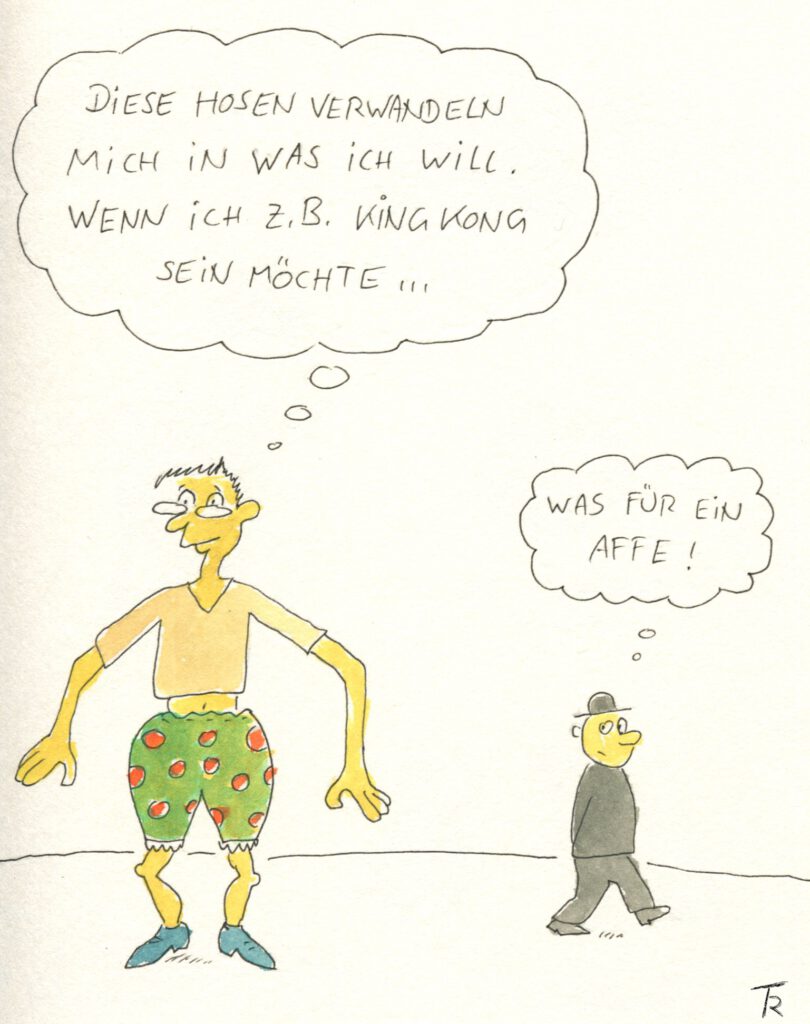 DIESE HOSEN VERWANDELN
MICH IN WAS ICH WILL.
WENN ICH Z.B. KING KONG
SEIN MÖCHTE...
WAS FÜR EIN
AFFE!
TR